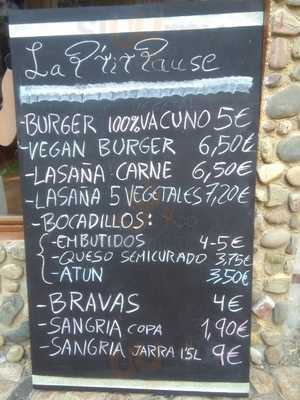 La P'tit Pause
-BURGER 100% VACUNO 5€
-VEGAN BURGER 6,50€
-LASAÑA CARNE 6,50€
-LASAÑA 5 VEGETALES 7,20€
-BOCADILLOS:
-EMBUTIDOS 4-5€
-QUESO SEMICURADO 3,75€
-ATUN 3,50€
-BRAVAS 4€
-SANGRIA COPA 1,90€
-SANGRIA JARRA 1'5L 9€